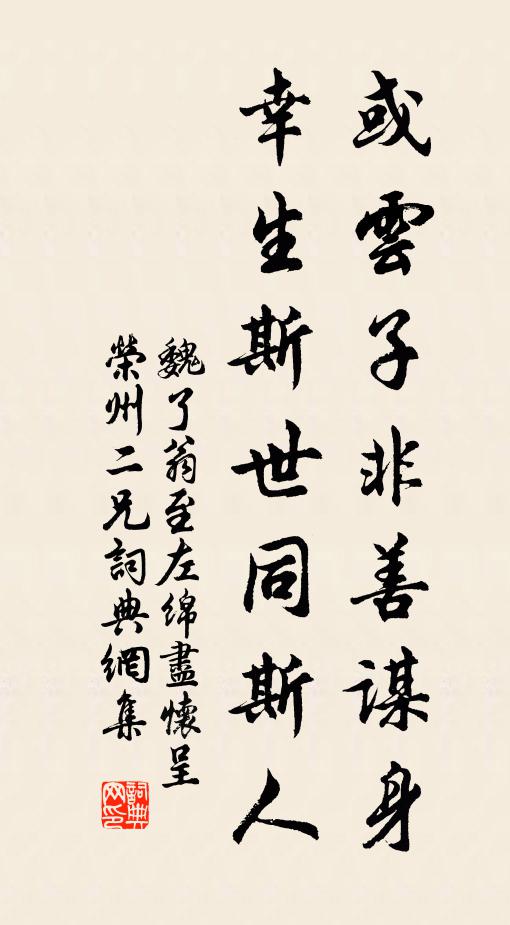 或雲子非善謀身
幸生斯世同斯人
魏了翁至左綿盡懷呈
榮州二兄詞典網集
詞典網印